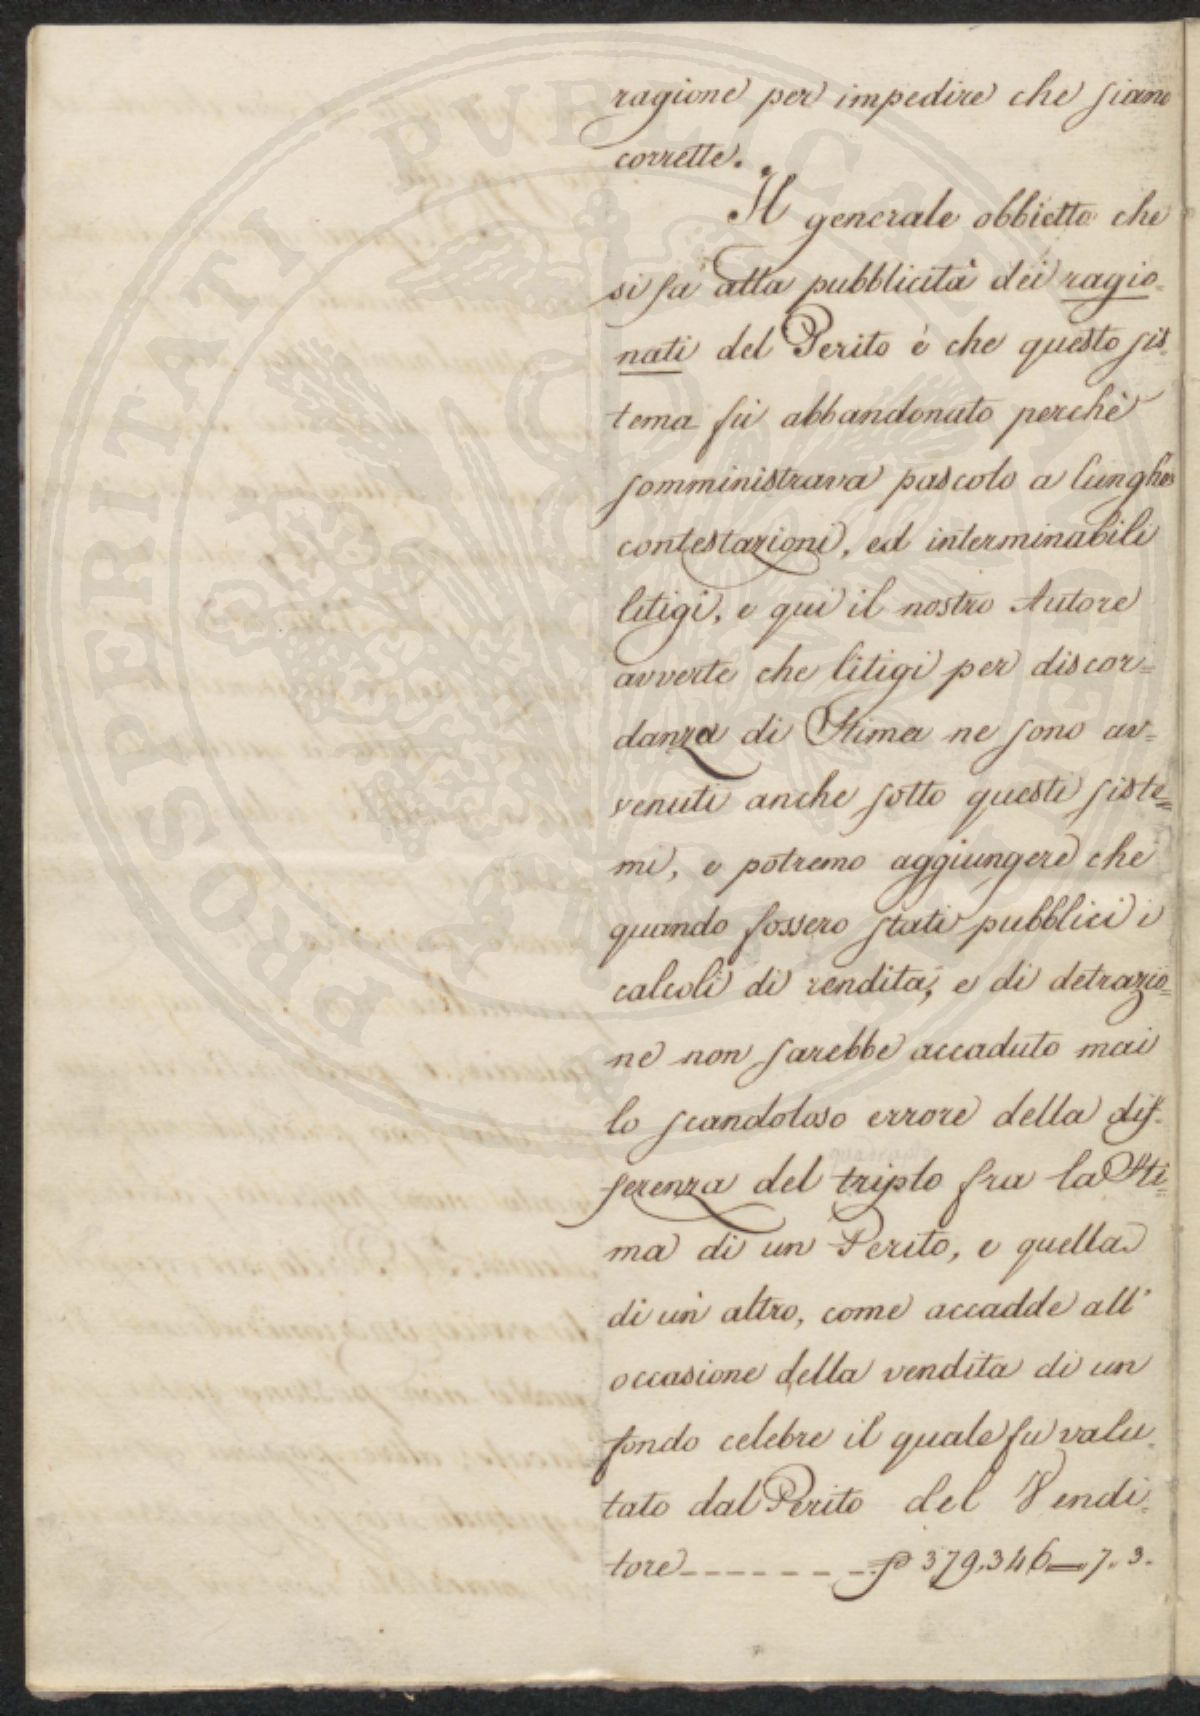 ragione per impedire che siano
corrette.
Il generale obbietto che
si fa alla pubblicità dei ragio=
nati del Perito è che questo sis
tema fù abbandonato perchè
somministrava pascolo a lunghe
contestazioni, ed interminabili
litigi, e qui il nostro Autore
avverte che litigi per discor=
danza di Stima ne sono av=
venuti anche sotto questi siste=
mi, e potremo aggiungere che
quando fossero stati pubblici i
calcoli di rendita, e di detrazio=
ne non sarebbe accaduto mai
lo scandoloso errore della dif=
quadruplo
ferenza del triplo fra la Sti=
ma di un Perito, e quella
di un altro, come accadde all'
occasione della vendita di un
fondo celebre il quale fu valu=
tato dal Perito del Vendi=
tore 379.346 = 7. 3.
PROSPERITATI PVBLICAE